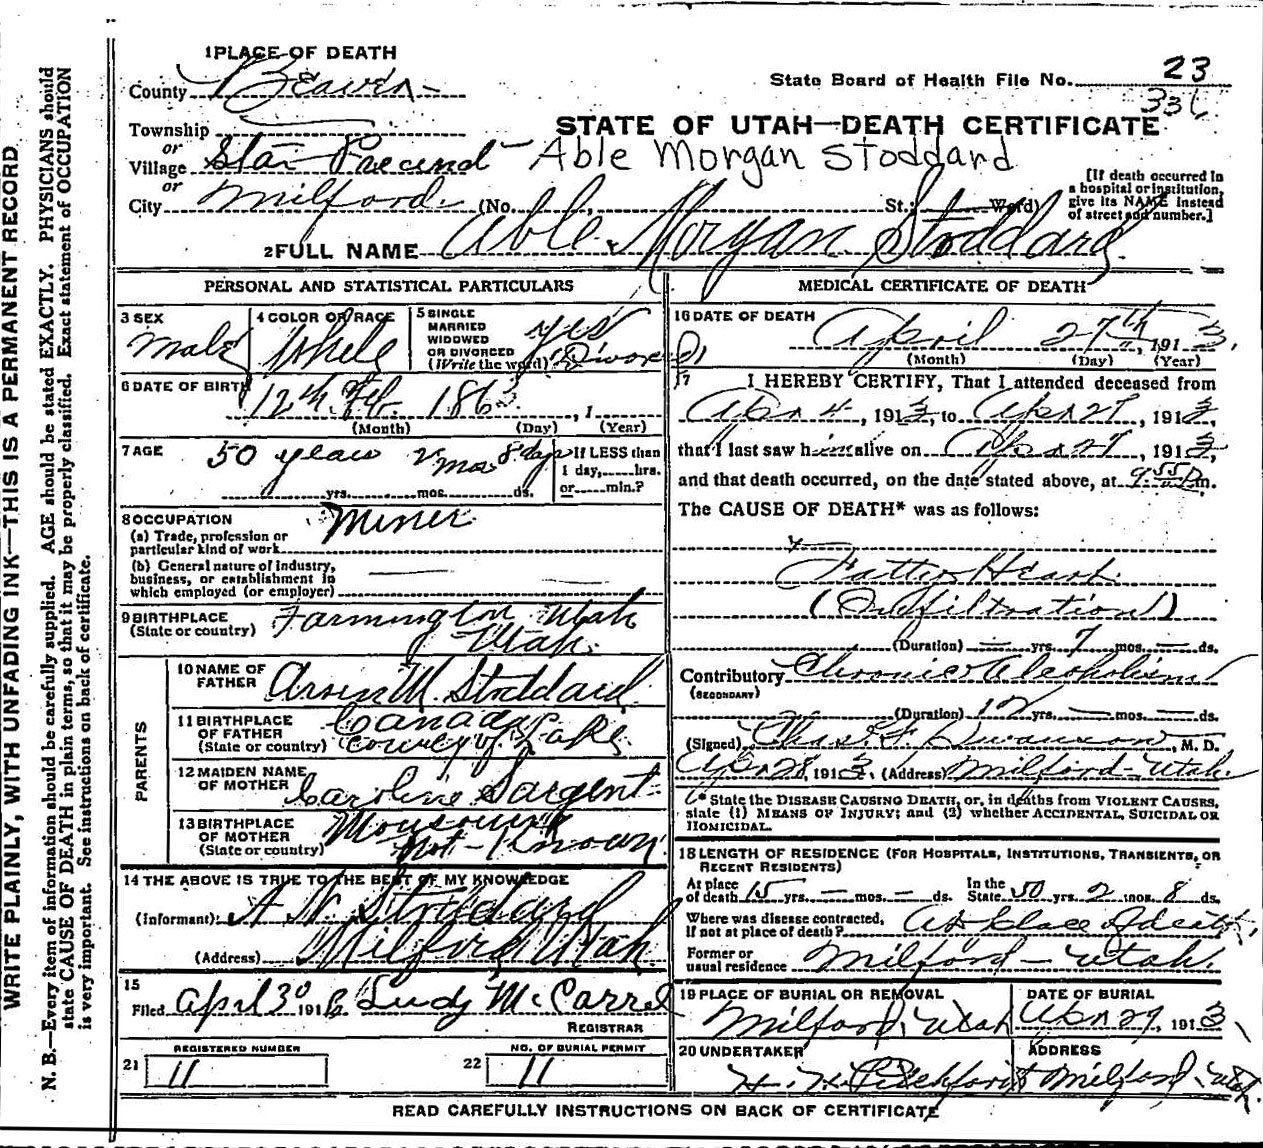 WRITE PLAINLY, WITH UNFADING INK—THIS IS A PERMANENT RECORD
N. B.—Every item of information should be carefully supplied. AGE should be stated EXACTLY. PHYSICIANS should
state CAUSE OF DEATH in plain terms, so that it may be properly classified. Exact statement of OCCUPATION
is very important. See instructions on back of certificate.
1 PLACE OF DEATH
County Beaver
State Board of Health File No. 23
336
Township
or
STATE OF UTAH—DEATH CERTIFICATE
Village Star Precinct
Able Morgan Stoddard
or
City Milford (No. , St.; Ward)
[If death occurred in
a hospital or institution,
give its NAME instead
of street and number.]
2 FULL NAME Able Morgan Stoddard
PERSONAL AND STATISTICAL PARTICULARS
3 SEX
Male
4 COLOR OR RACE
White
5 SINGLE
MARRIED
WIDOWED
OR DIVORCED
(Write the word)
yes
Divorced
6 DATE OF BIRTH
12th Feb. 1863, 1
(Month) (Day) (Year)
7 AGE
50 years 2 mos 8 days
yrs. mos. ds.
If LESS than
1 day, hrs.
or min.?
8 OCCUPATION
(a) Trade, profession or
particular kind of work
Miner
(b) General nature of industry,
business, or establishment in
which employed (or employer)
9 BIRTHPLACE
(State or country)
Farmington Utah
Utah.
PARENTS
10 NAME OF
FATHER
M. Stoddard
11 BIRTHPLACE
OF FATHER
(State or country)
Canada
county of
12 MAIDEN NAME
OF MOTHER
Caroline Sargent
13 BIRTHPLACE
OF MOTHER
(State or country)
Not-Known
14 THE ABOVE IS TRUE TO THE BEST OF MY KNOWLEDGE
(Informant) A N Stoddard
(Address) Milford Utah
15
Filed April 30 191 Ludy McCarrel
REGISTRAR
21
REGISTERED NUMBER
11
22
NO. OF BURIAL PERMIT
11
MEDICAL CERTIFICATE OF DEATH
16 DATE OF DEATH
April 27th, 1913.
(Month) (Day) (Year)
17
I HEREBY CERTIFY, That I attended deceased from
Apr 4, 1913, to Apr 27, 1913,
that I last saw him alive on Apr 27, 1913,
and that death occurred, on the date stated above, at 9.55 P m.
The CAUSE OF DEATH* was as follows:
Fatty Heart
(Infiltration)
(Duration) — yrs. 7 mos. — ds.
Contributory Chronic Alcoholism
(SECONDARY)
(Duration) 12 yrs. — mos. — ds.
(Signed) Chas. F. Swanson, M. D.
Apr 28, 1913. (Address) Milford-Utah.
* State the DISEASE CAUSING DEATH, or, in deaths from VIOLENT CAUSES,
state (1) MEANS OF INJURY; and (2) whether ACCIDENTAL, SUICIDAL OR
HOMICIDAL.
18 LENGTH OF RESIDENCE (FOR HOSPITALS, INSTITUTIONS, TRANSIENTS, OR
RECENT RESIDENTS)
At place
of death 15 yrs. — mos. — ds.
In the
State 50 yrs. 2 mos. 8 ds.
Where was disease contracted,
If not at place of death? At place of death.
Former or
usual residence Milford - Utah.
19 PLACE OF BURIAL OR REMOVAL
Milford, Utah
DATE OF BURIAL
Apr 29, 1913
20 UNDERTAKER
ADDRESS
Milford Utah.
READ CAREFULLY INSTRUCTIONS ON BACK OF CERTIFICATE